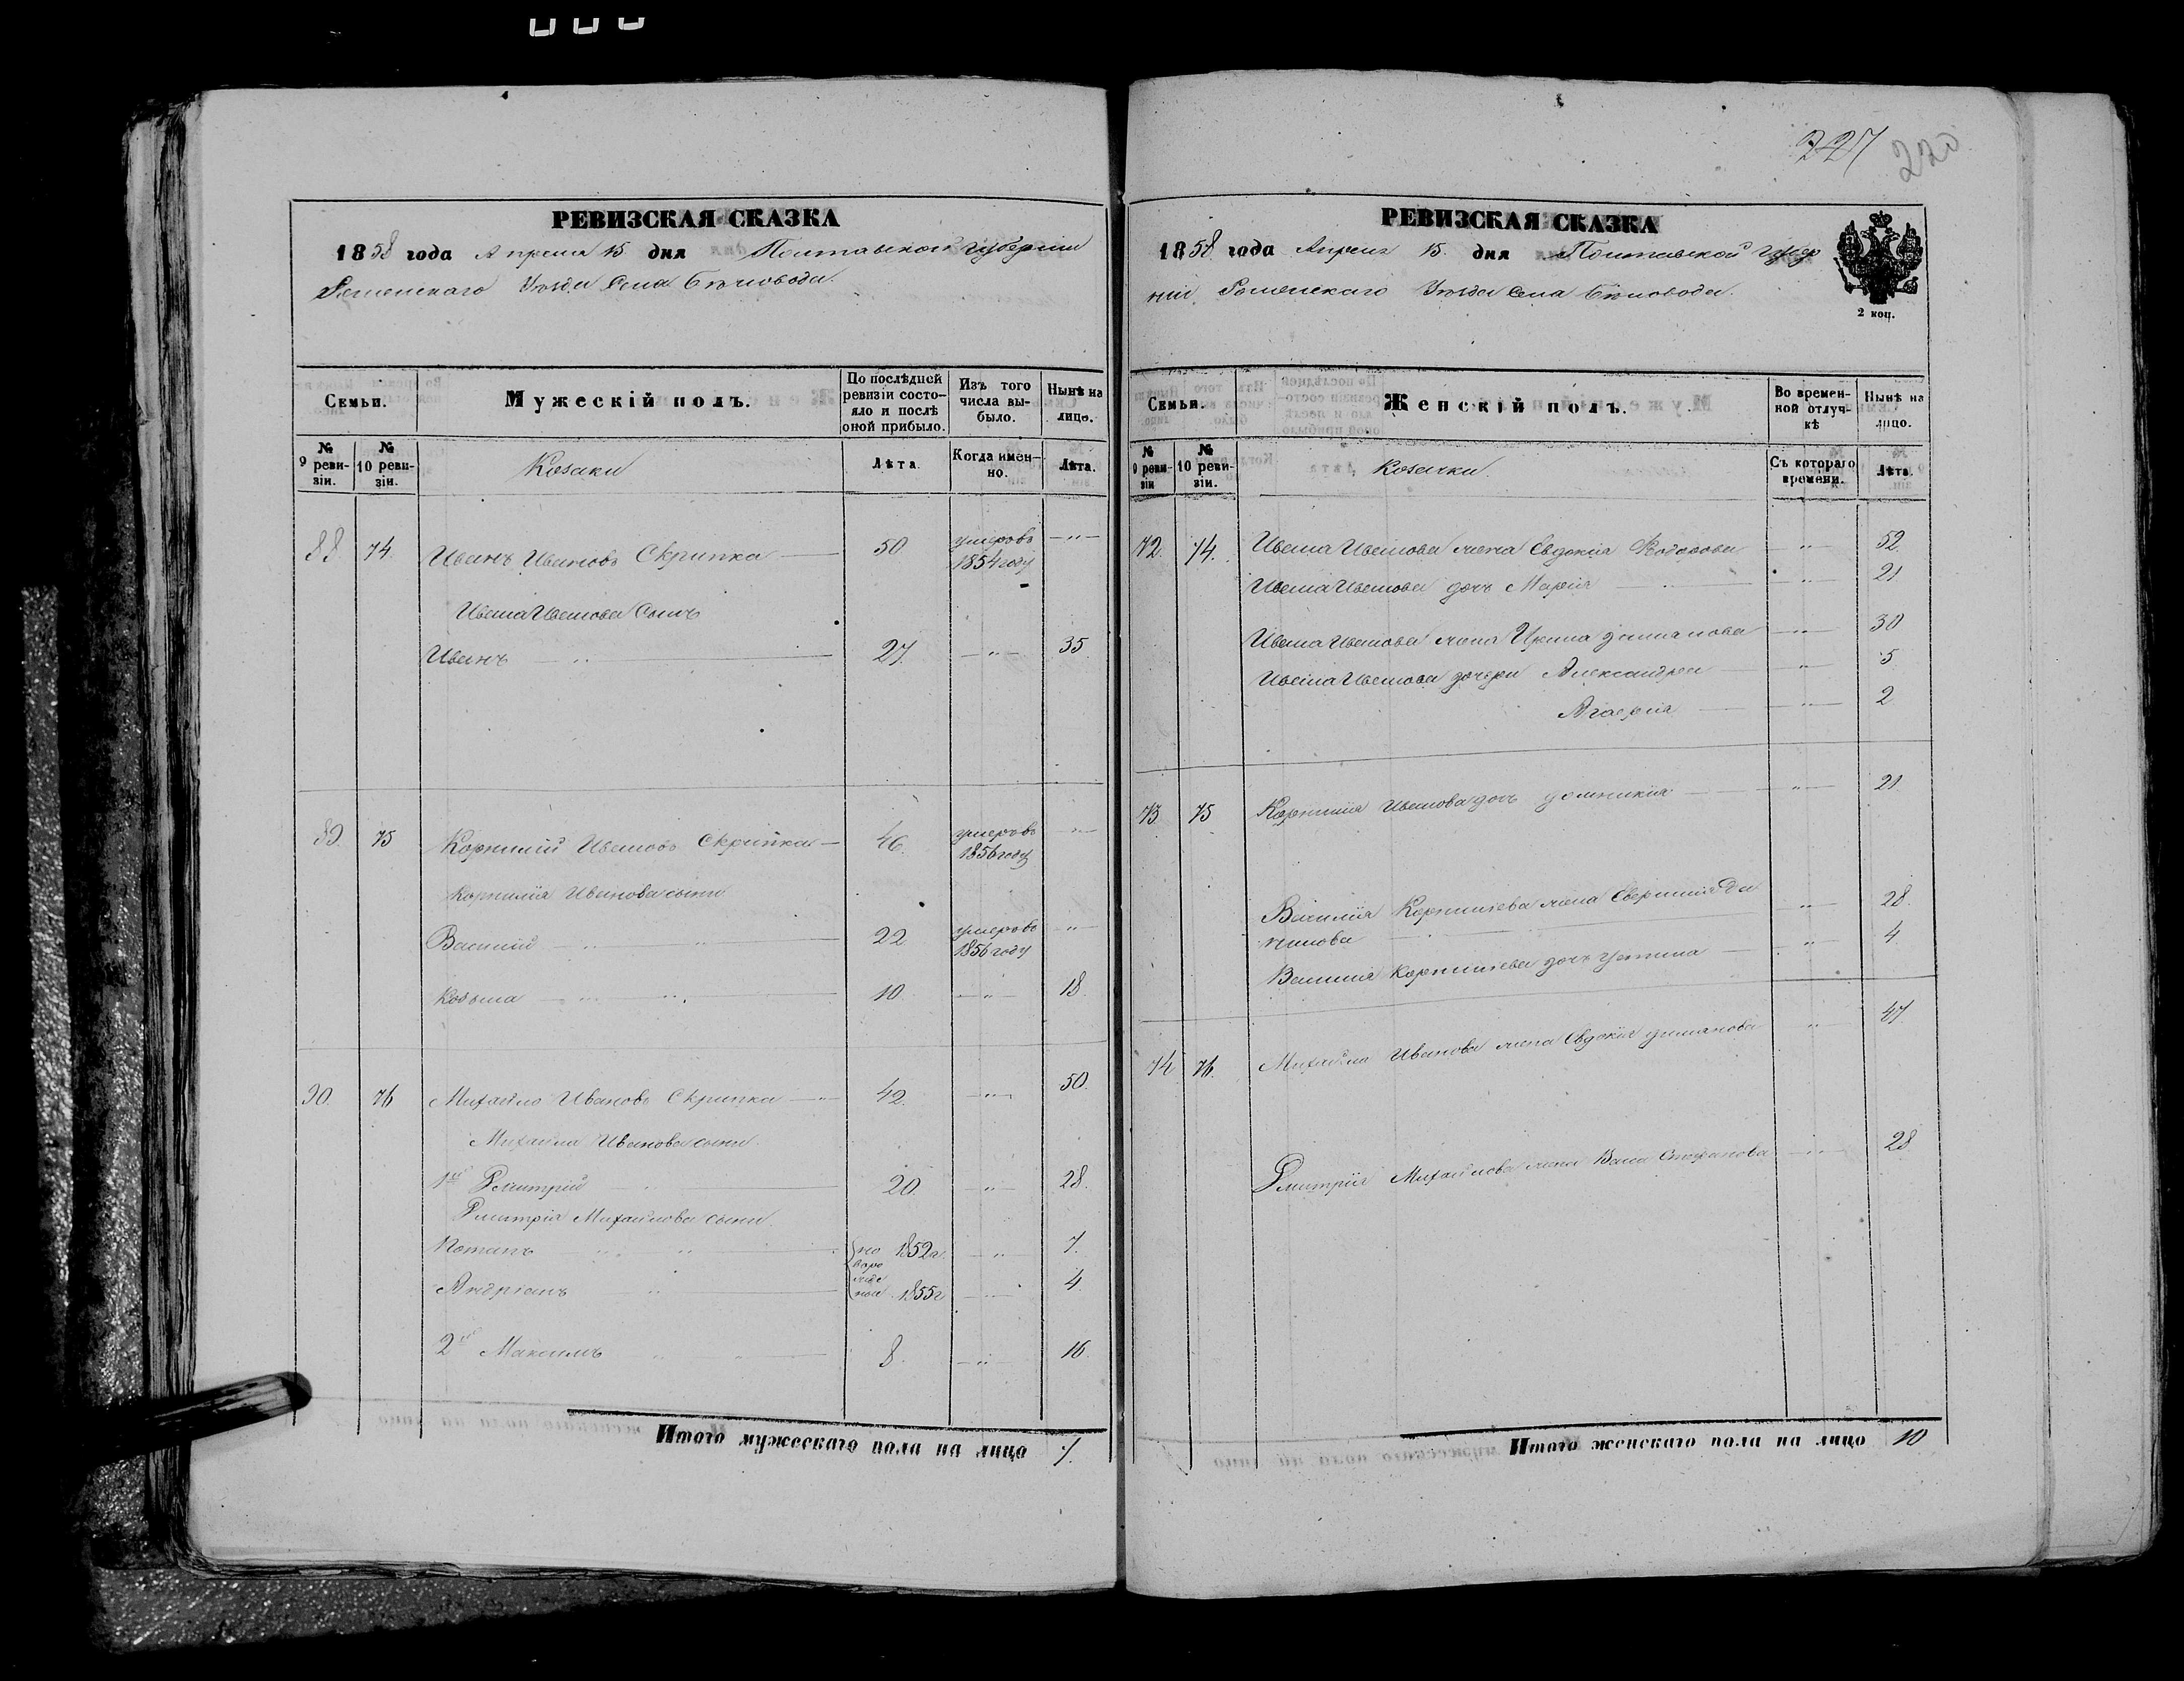 РЕВИЗСКАЯ СКАЗКА
1858 года Апреля 15 дня Полтавской губернии
Роменскаго Уезда Села Беловода.
Семьи.
Мужескій полъ.
По послѣдней ревизіи состояло и послѣ оной прибыло.
Изъ того числа выбыло.
Нынѣ на лицо.
№ 9 ревизіи.
№ 10 ревизіи.
Козаки
Лѣта.
Когда именно.
Лѣта.
88. 74. Иванъ Ивановъ Скрипка 50 умеръ въ 1854 году
Ивана Иванова Сынъ
Иванъ 27. 35
89. 75 Корнилій Ивановъ Скрипка 46. умеръ въ 1856 году
Корнилія Иванова сыни
Василій 22 умеръ въ 1856 году
Козьма 10. 18.
90. 76 Михайло Ивановъ Скрипка 42. 50.
Михайла Иванова сыни.
1й Дмитрій 20. 28.
Дмитрія Михайлова сыни.
Потапъ 1852г. 7.
Андріанъ 1855г 4
2й Максимъ 8. 16.
Итого мужескаго пола на лицо 7.
227 220
РЕВИЗСКАЯ СКАЗКА
1858 года Апреля 15. дня Полтавской Губер
ніи, Роменскаго Уезда Села Беловода.
2 коп.
Семьи.
Женскій полъ.
Во временной отлучкѣ
Нынѣ на лицо.
№ 9 ревизіи
№ 10 ревизіи.
Козачки.
Съ котораго времени.
Лѣта.
72. 74. Ивана Иванова жена Евдокія Федорова 52.
Ивана Иванова дочь Марія 21
Ивана Иванова жена Ирина 30
Ивана Иванова дочери Александра 5
Агафія 2
73. 75 Корнилія Иванова дочь Домникія 21
Василія Корнилиева жена 28.
Василия Корнилиева дочь Устина 4
74 76. Михайла Иванова жена Евдокія 47
Дмитрія Михайлова жена Васа Стефанова 28
Итого женскаго пола на лицо 10